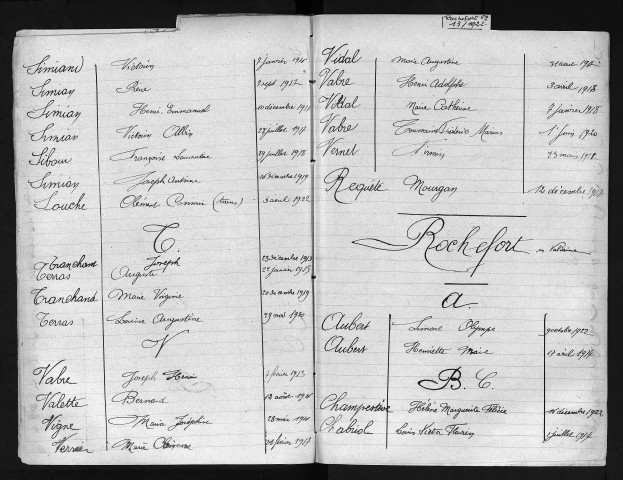 Rochefort
13/1922
Simiand Victorin 9 janvier 1914
Simian René 9 sept 1912
Simian Henri Emmanuel 10 décembre 1911
Simian Victorin Albin 28 juillet 1914
Sibour Françoise 29 juillet 1918
Simian Joseph Antoine 16 décembre 1919
Louche Clément 3 avril 1922
T.
Tranchand Joseph 23 décembre 1913
Terras Auguste 22 janvier 1915
Tranchand Marie Virginie 20 décembre 1919
Terras Louise Augustine 29 mai 1920
V
Vabre Joseph Henri 7 février 1913
Valette Bernard 12 août 1914
Vigne Maria Joséphine 28 mai 1914
Marie 21 février 1918
Vidal Marie Augustine 31 août 1912
Vabre Henri Adolphe 3 avril 1918
Vidal Marie Catherine 7 janvier 1918
Vabre Toussaint Frédéric Marius 1er juin 1920
Vernet 23 mars 1918
Requête Mourgan 12 décembre 1917
Rochefort en Valdaine
A.
Aubert Simond Olympe 9 octobre 1922
Aubert Henriette Marie 17 avril 1914
B. C.
Champestève Hélène Marguerite Félicie décembre 1922
Chabriol Louis Victor Fleury 1 juillet 1914